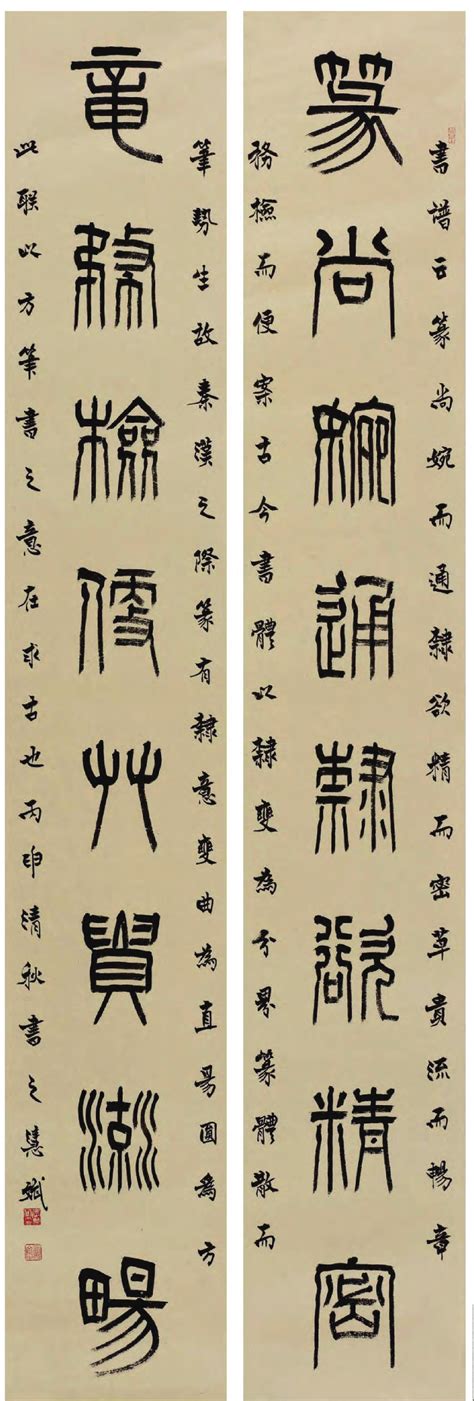 篆尚婉通隸欲精密
章務檢便艸貴流暢
書譜云篆尚婉而通隸欲精而密草貴流而暢章
務檢而便案古今書體以隸變為分界篆體散而
筆勢生故秦漢之際篆有隸意變曲為直易圓為方
此聯以方筆書之意在求古也丙申清秋書之慧斌